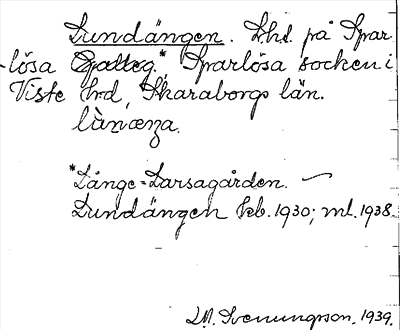 Lundängen. Lhd. på Spar
-lösa * Sparlösa socken i
Viste hrd, Skaraborgs län.
*Länge-Larsagården.
Lundängen kb. 1930; ml. 1938.
Svenungsson. 1939.